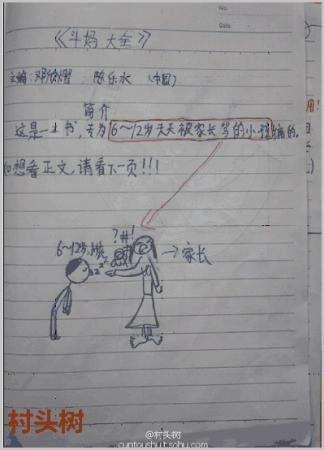 No.
Date.
《斗妈大全》
主编:邓欣耀 陈乐水 (中国)
简介
这是一本书,专为6~12岁天天被家长骂的小孩编的。
如想看正文,请看下一页!!!
?#!
6~12岁小孩
→家长
村头树
@村头树
cuntoushu.t.sohu.com